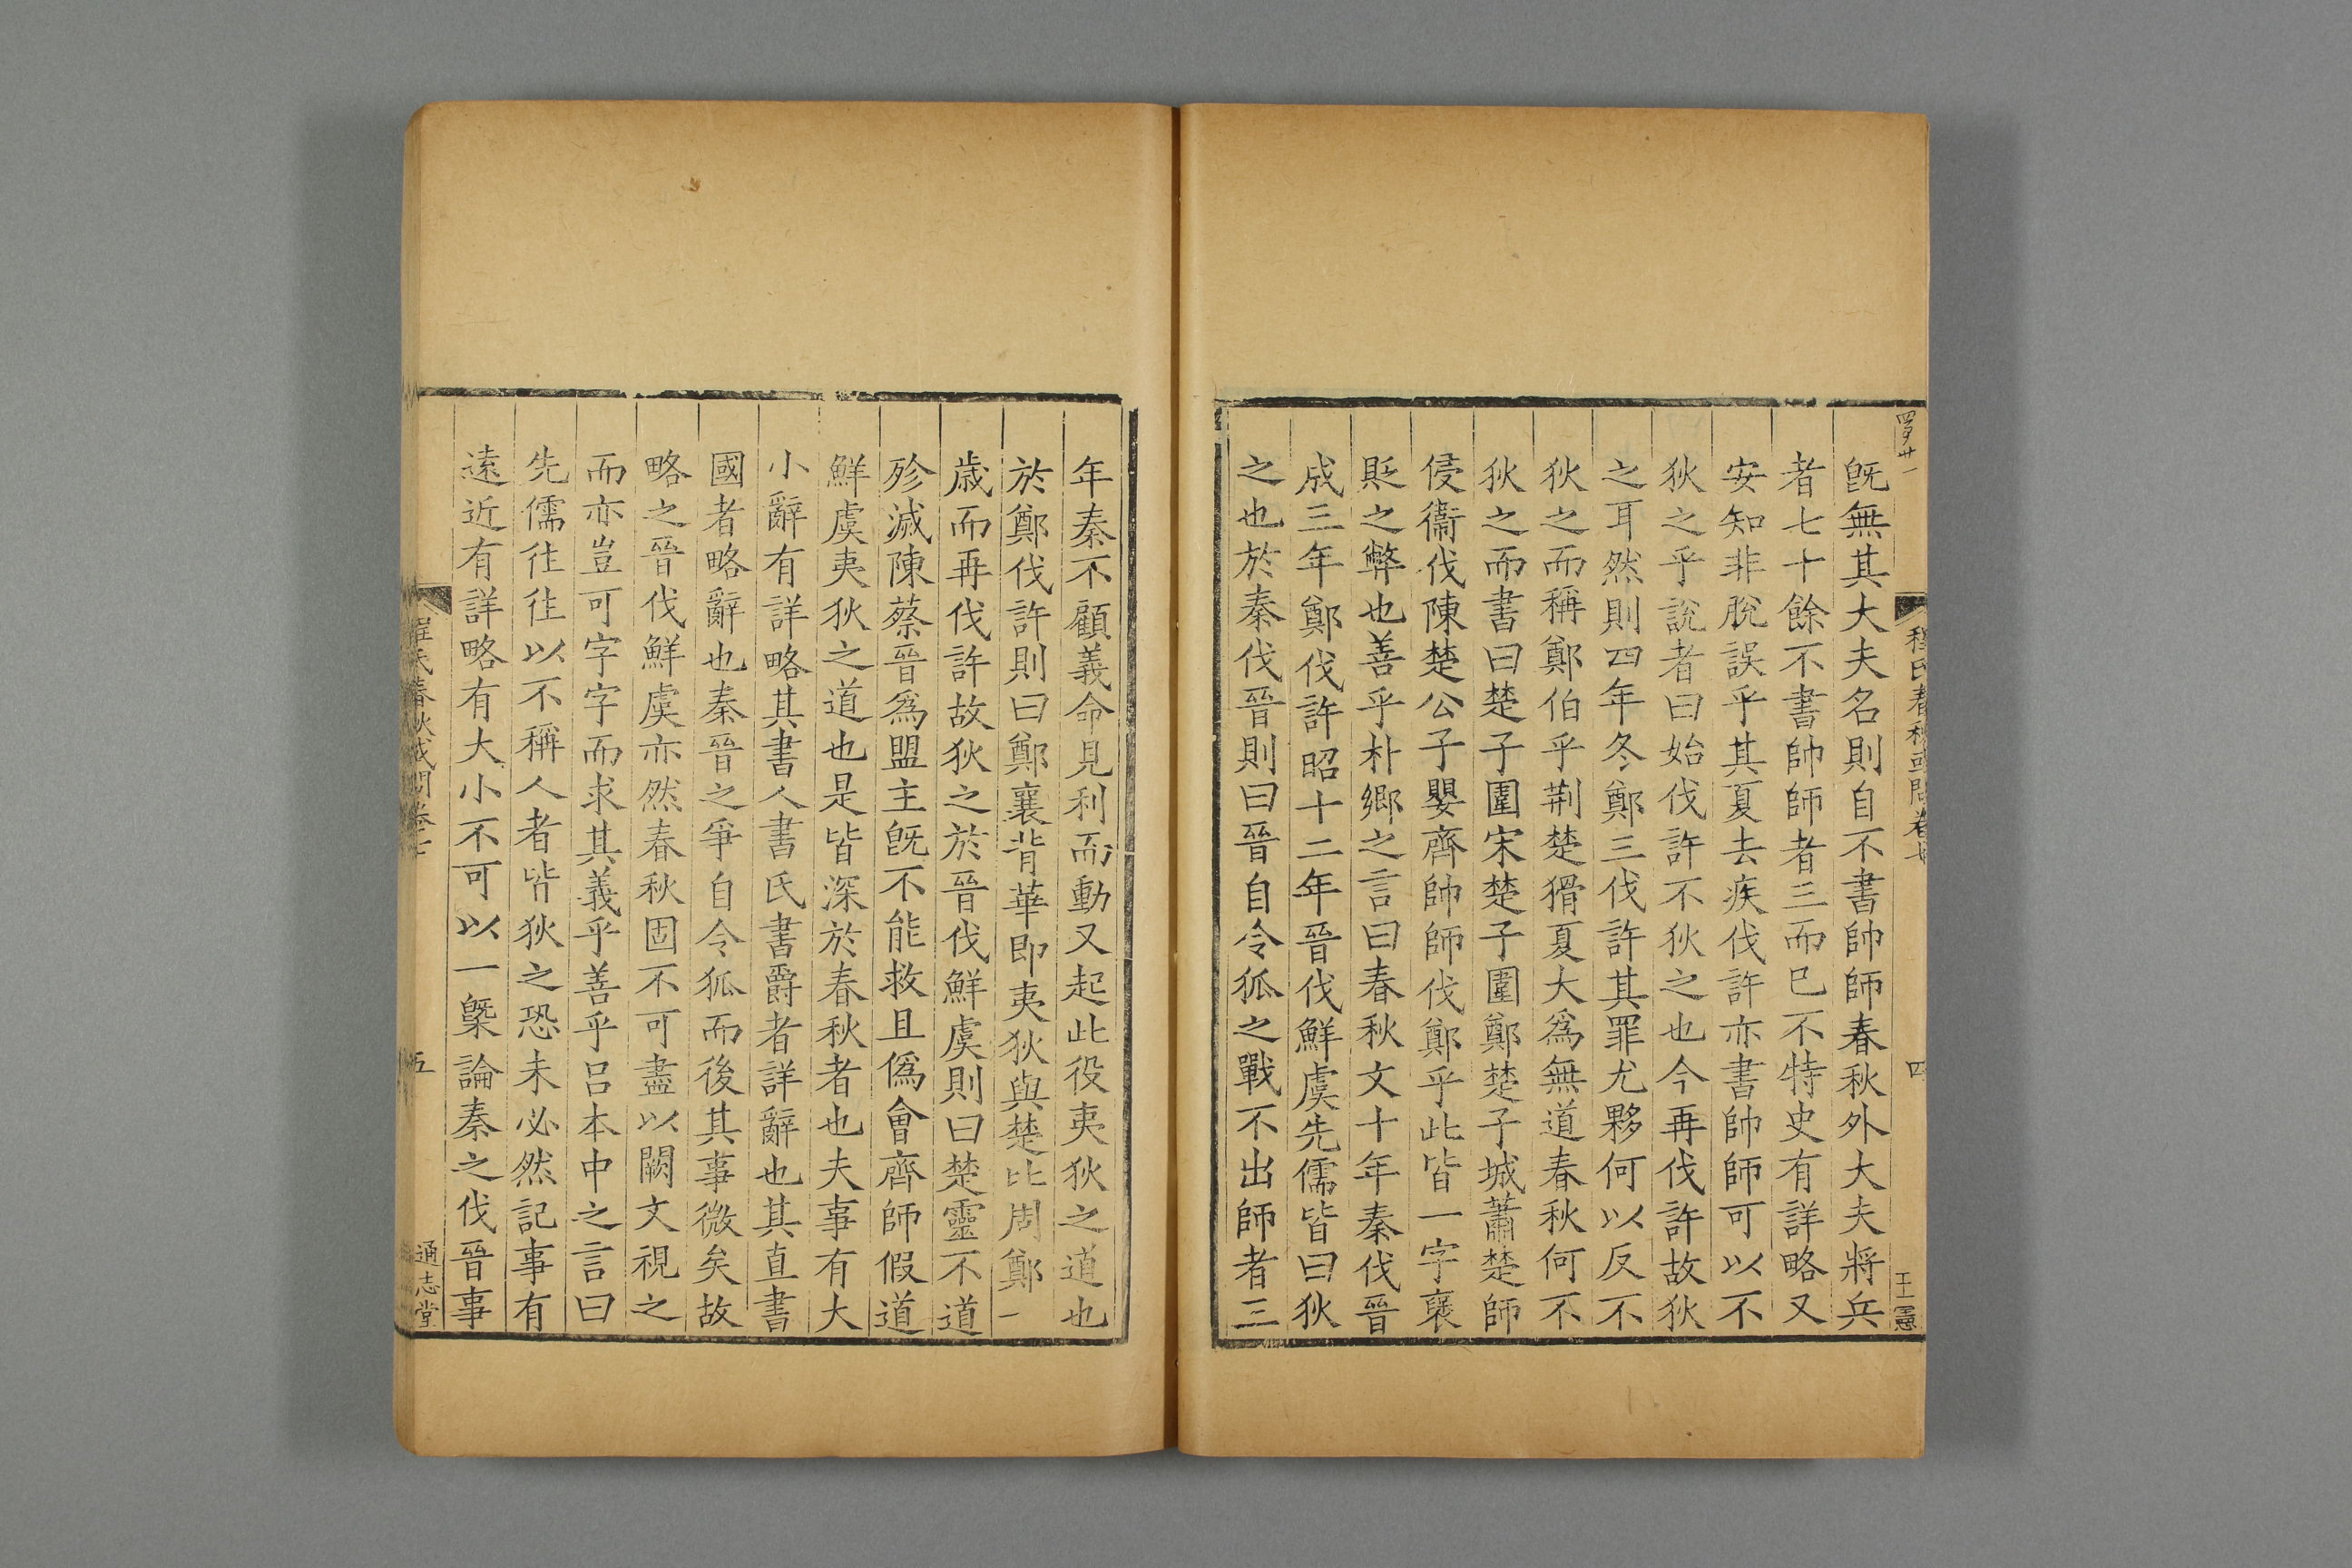 既無其大夫名則自不書帥師春秋外大夫將兵
者七十餘不書帥師者三而已不特史有詳略又
安知非脫誤乎其夏去疾伐許亦書帥師可以不
狄之乎說者曰始伐許不狄之也今再伐許故狄
之耳然則四年冬鄭三伐許其罪尤夥何以反不
狄之而稱鄭伯乎荆楚猾夏大為無道春秋何不
狄之而書曰楚子圍宋楚子圍鄭楚子城蕭楚師
侵衞伐陳楚公子嬰齊帥師伐鄭乎此皆一字襃
貶之弊也善乎朴鄉之言曰春秋文十年秦伐晉
成三年鄭伐許昭十二年晉伐鮮虞先儒皆曰狄
之也於秦伐晉則曰晉自令狐之戰不出師者三
程氏春秋或問卷七
四
年秦不顧義命見利而動又起此役夷狄之道也
於鄭伐許則曰鄭襄背華即夷狄與楚比周鄭一
歲而再伐許故狄之於晉伐鮮虞則曰楚靈不道
殄滅陳蔡晉爲盟主既不能救且僞會齊師假道
鮮虞夷狄之道也是皆深於春秋者也夫事有大
小辭有詳略其書人書氏書爵者詳辭也其直書
國者略辭也秦晉之爭自令狐而後其事微矣故
略之晉伐鮮虞亦然春秋固不可盡以闕文視之
而亦豈可字字而求其義乎善乎呂本中之言曰
先儒徃徃以不稱人者皆狄之恐未必然記事有
遠近有詳略有大小不可以一槩論秦之伐晉事
程氏春秋或問卷七
五
通志堂